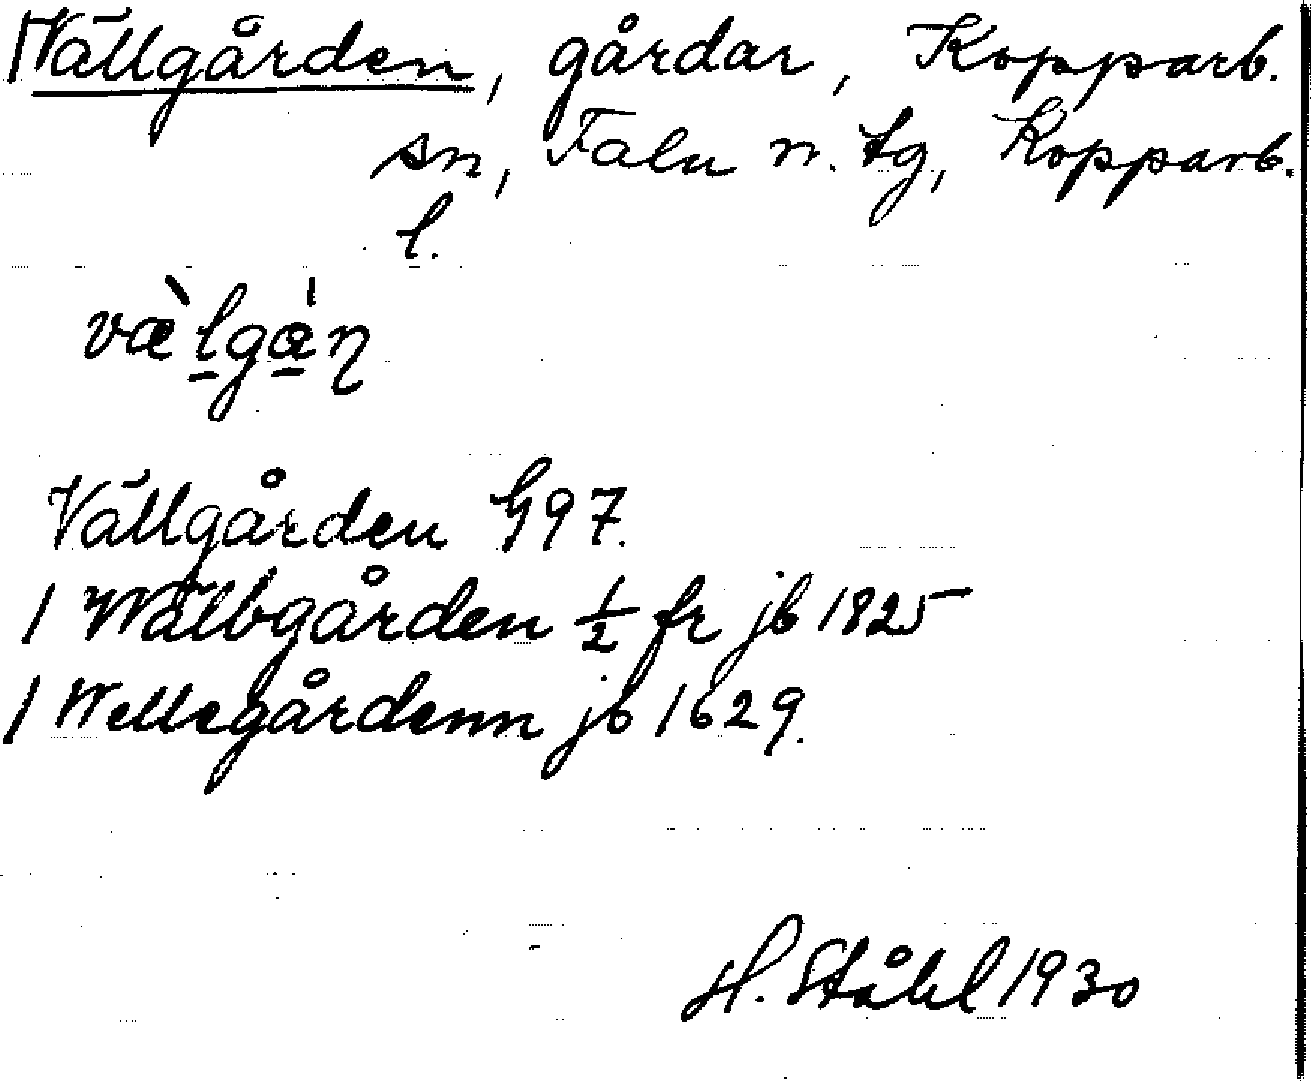 Vällgården, gårdar, Kopparb.
sn, Falu n. tg, Kopparb.
l.
væ̀lgån
Vällgården G97.
1 Wälbgården ½ fr jb 1825
1 Wellegårdenn jb 1629.
H. Ståhl 1930